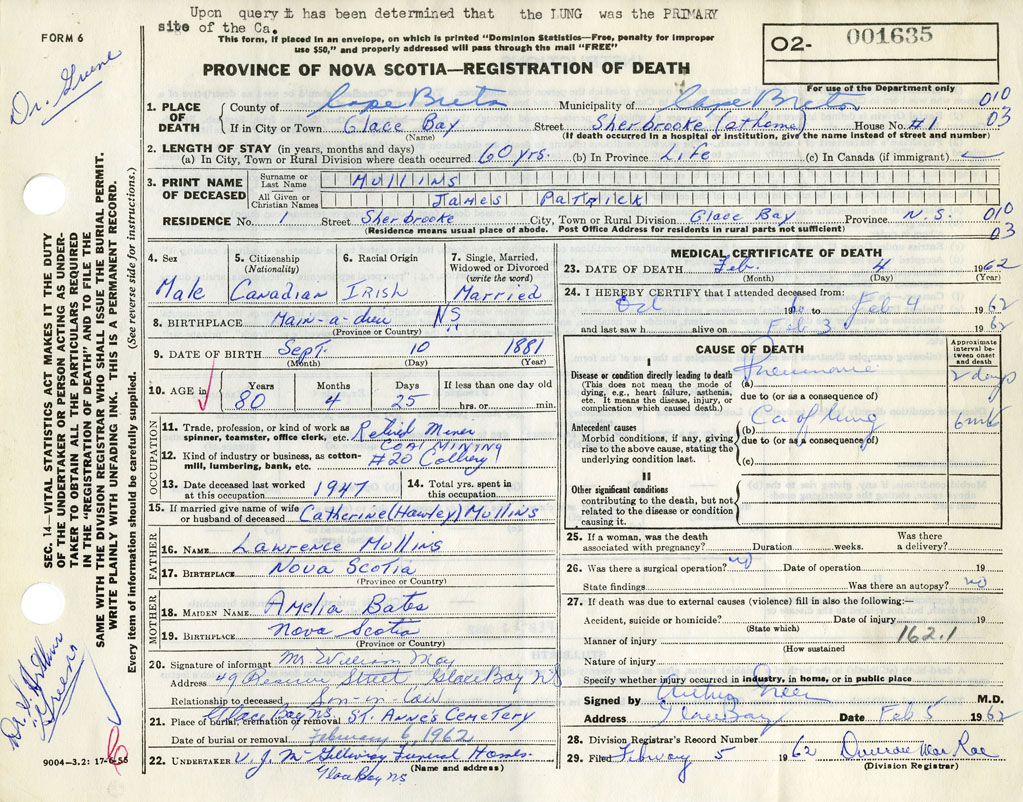 Upon query it has been determined that the LUNG was the PRIMARY
site of the Ca.
FORM 6
This form, if placed in an envelope, on which is printed "Dominion Statistics—Free, penalty for improper
use $50," and properly addressed will pass through the mail "FREE"
O2- 001635
PROVINCE OF NOVA SCOTIA—REGISTRATION OF DEATH
For use of the Department only
Dr. Greene
1. PLACE OF DEATH County of Cape Breton Municipality of Cape Breton 010
If in City or Town Glace Bay Street Sherbrooke (at home) House No. #1 03
(Name) (If death occurred in a hospital or institution, give the name instead of street and number)
2. LENGTH OF STAY (in years, months and days)
(a) In City, Town or Rural Division where death occurred 60 yrs. (b) In Province Life (c) In Canada (if immigrant)
3. PRINT NAME OF DECEASED Surname or Last Name MULLINS
All Given or Christian Names JAMES PATRICK
RESIDENCE No. 1 Street Sherbrooke City, Town or Rural Division Glace Bay Province N.S. 010
(Residence means usual place of abode. Post Office Address for residents in rural parts not sufficient) 03
4. Sex Male
5. Citizenship (Nationality) Canadian
6. Racial Origin Irish
7. Single, Married, Widowed or Divorced (write the word) Married
8. BIRTHPLACE Main-a-dieu NS
(Province or Country)
9. DATE OF BIRTH Sept. 10 1881
(Month) (Day) (Year)
10. AGE in Years 80 Months 4 Days 25 If less than one day old
hrs. or min.
OCCUPATION
11. Trade, profession, or kind of work as spinner, teamster, office clerk, etc. Retired Miner
12. Kind of industry or business, as cotton-mill, lumbering, bank, etc. COAL MINING
#20 Colliery
13. Date deceased last worked at this occupation 1947 14. Total yrs. spent in this occupation
15. If married give name of wife or husband of deceased Catherine (Hawley) Mullins
FATHER
16. NAME Lawrence Mullins
17. BIRTHPLACE Nova Scotia
(Province or Country)
MOTHER
18. MAIDEN NAME Amelia Bates
19. BIRTHPLACE Nova Scotia
(Province or Country)
20. Signature of informant Mr. William
Address 49 Reserve Street Glace Bay NS
Relationship to deceased Son in law
21. Place of burial, cremation or removal Glace Bay NS. ST. ANNE'S CEMETERY
Date of burial or removal February 6, 1962
22. UNDERTAKER V. J. McGillivray Funeral Homes
Glace Bay NS (Name and address)
MEDICAL CERTIFICATE OF DEATH
23. DATE OF DEATH Feb. 4 1962
(Month) (Day) (Year)
24. I HEREBY CERTIFY that I attended deceased from:
Oct 19 to Feb 4 1962
and last saw h alive on Feb 3 1962
CAUSE OF DEATH
Approximate interval between onset and death
I
Disease or condition directly leading to death
(This does not mean the mode of dying, e.g., heart failure, asthenia, etc. It means the disease, injury, or complication which caused death.)
(a) Pneumonia 2 days
due to (or as a consequence of)
Antecedent causes
Morbid conditions, if any, giving rise to the above cause, stating the underlying condition last.
(b) Ca of lung
due to (or as a consequence of)
(c)
II
Other significant conditions
contributing to the death, but not related to the disease or condition causing it.
25. If a woman, was the death associated with pregnancy? Duration weeks. Was there a delivery?
26. Was there a surgical operation? no Date of operation 19
State findings Was there an autopsy? no
27. If death was due to external causes (violence) fill in also the following:—
Accident, suicide or homicide? Date of injury 19
(State which)
Manner of injury 162.1
(How sustained
Nature of injury
Specify whether injury occurred in industry, in home, or in public place
Signed by Arthur M.D.
Address Glace Bay Date Feb 5 1962
28. Division Registrar's Record Number
29. Filed February 5 1962
(Division Registrar)
SEC. 14—VITAL STATISTICS ACT MAKES IT THE DUTY
OF THE UNDERTAKER OR PERSON ACTING AS UNDER-
TAKER TO OBTAIN ALL THE PARTICULARS REQUIRED
IN THE "REGISTRATION OF DEATH" AND TO FILE THE
SAME WITH THE DIVISION REGISTRAR WHO SHALL ISSUE THE BURIAL PERMIT.
WRITE PLAINLY WITH UNFADING INK. THIS IS A PERMANENT RECORD.
Every item of information should be carefully supplied. (See reverse side for instructions.)
9004-3.2: 17-6-55